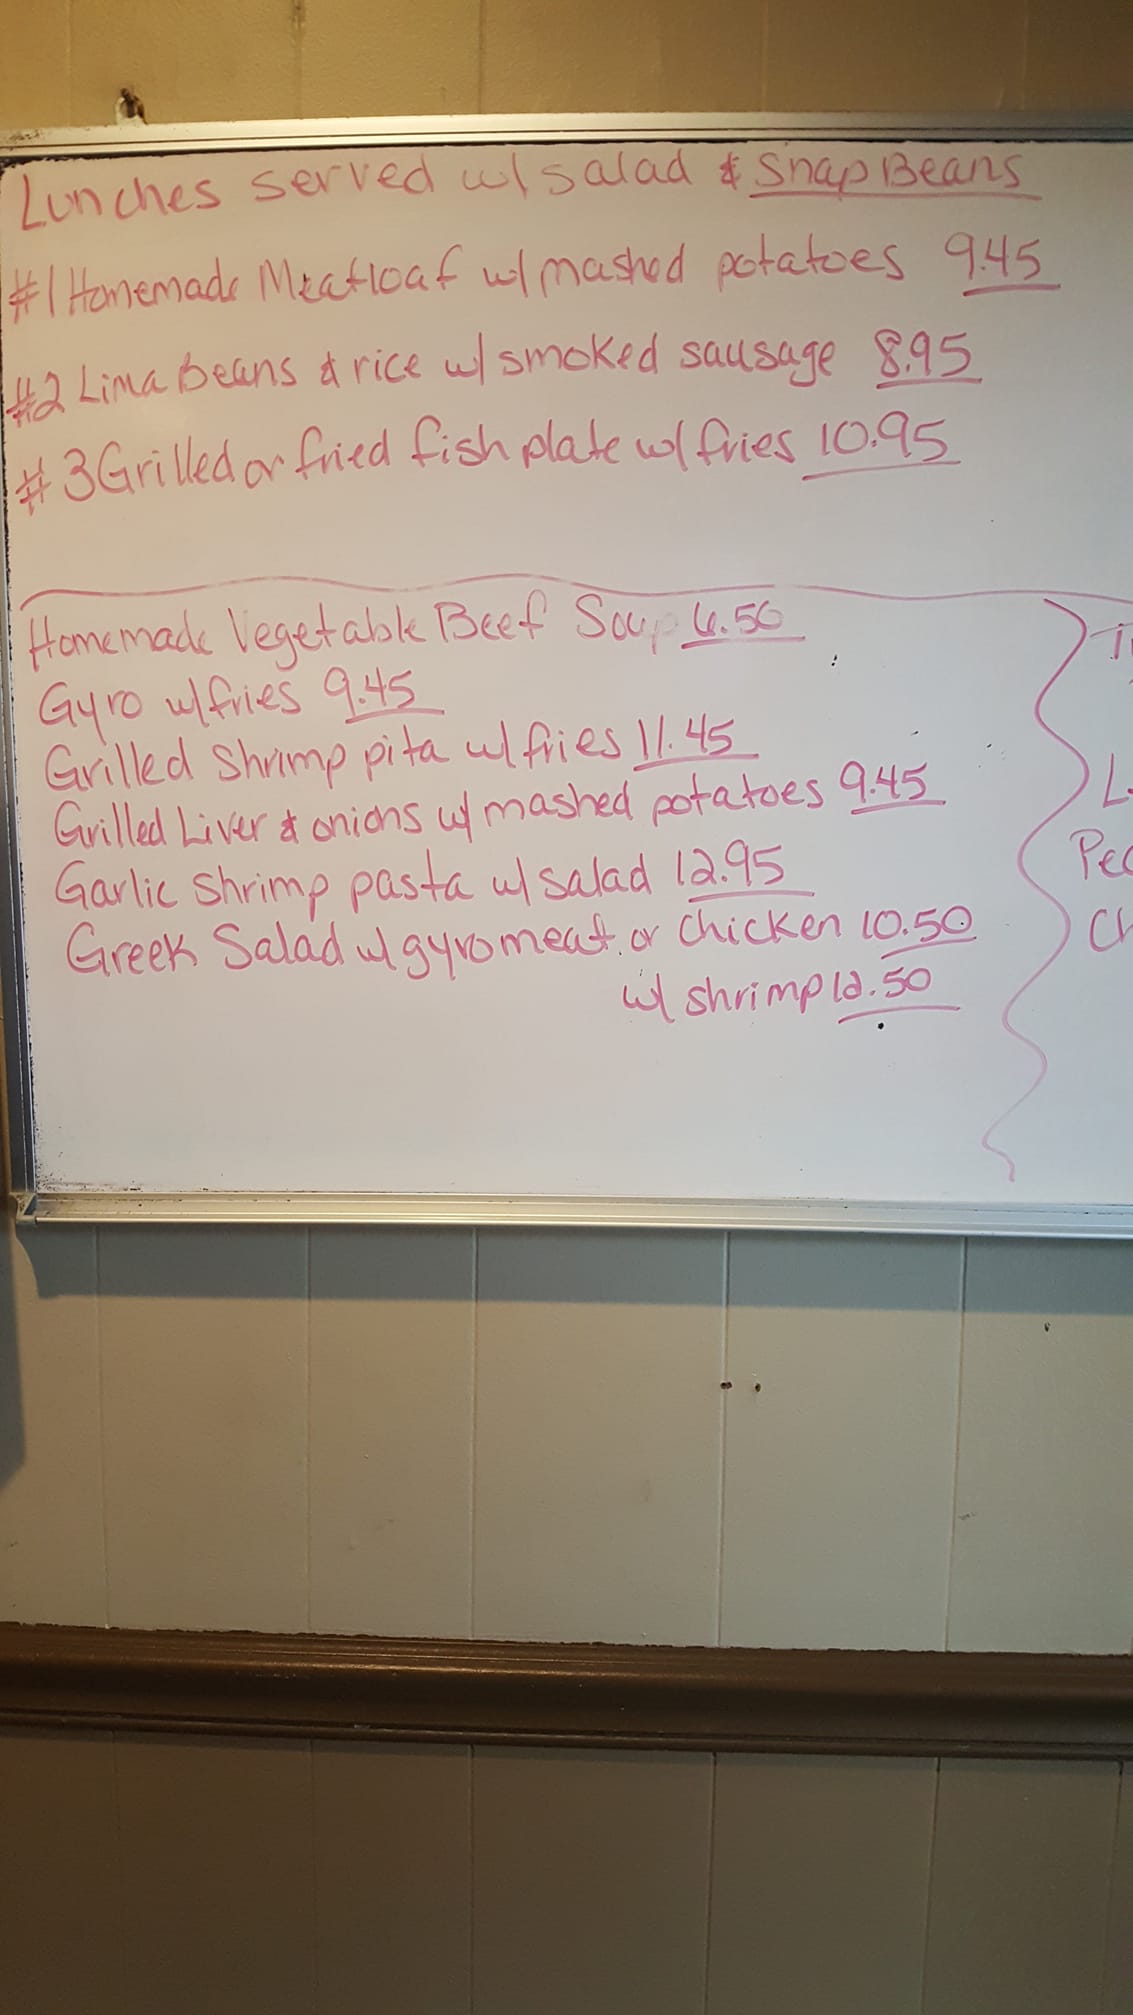 Lunches served w/ salad & Snap Beans
#1 Homemade Meatloaf w/ mashed potatoes 9.45
#2 Lima Beans & rice w/ smoked sausage 8.95
#3 Grilled or fried fish plate w/ fries 10.95
Homemade Vegetable Beef Soup 6.50
Gyro w/ fries 9.45
Grilled Shrimp pita w/ fries 11.45
Grilled Liver & onions w/ mashed potatoes 9.45
Garlic Shrimp pasta w/ salad 12.95
Greek Salad w/ gyro meat or chicken 10.50
w/ shrimp 12.50